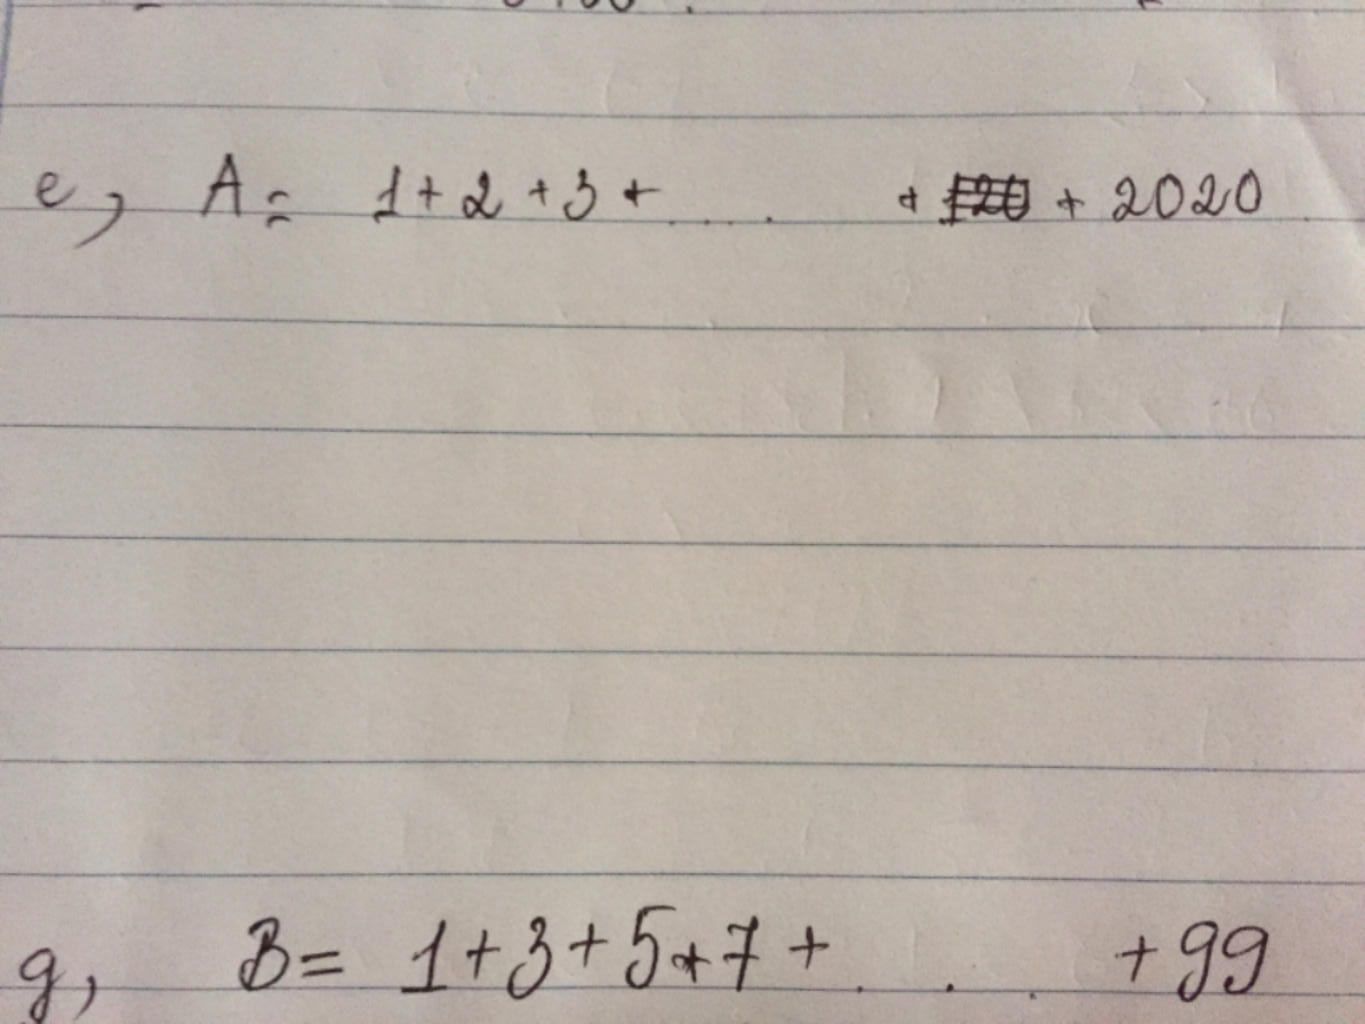 e, A = 1 + 2 + 3 + .... + + 2020
g, B = 1 + 3 + 5 + 7 + . . . + 99